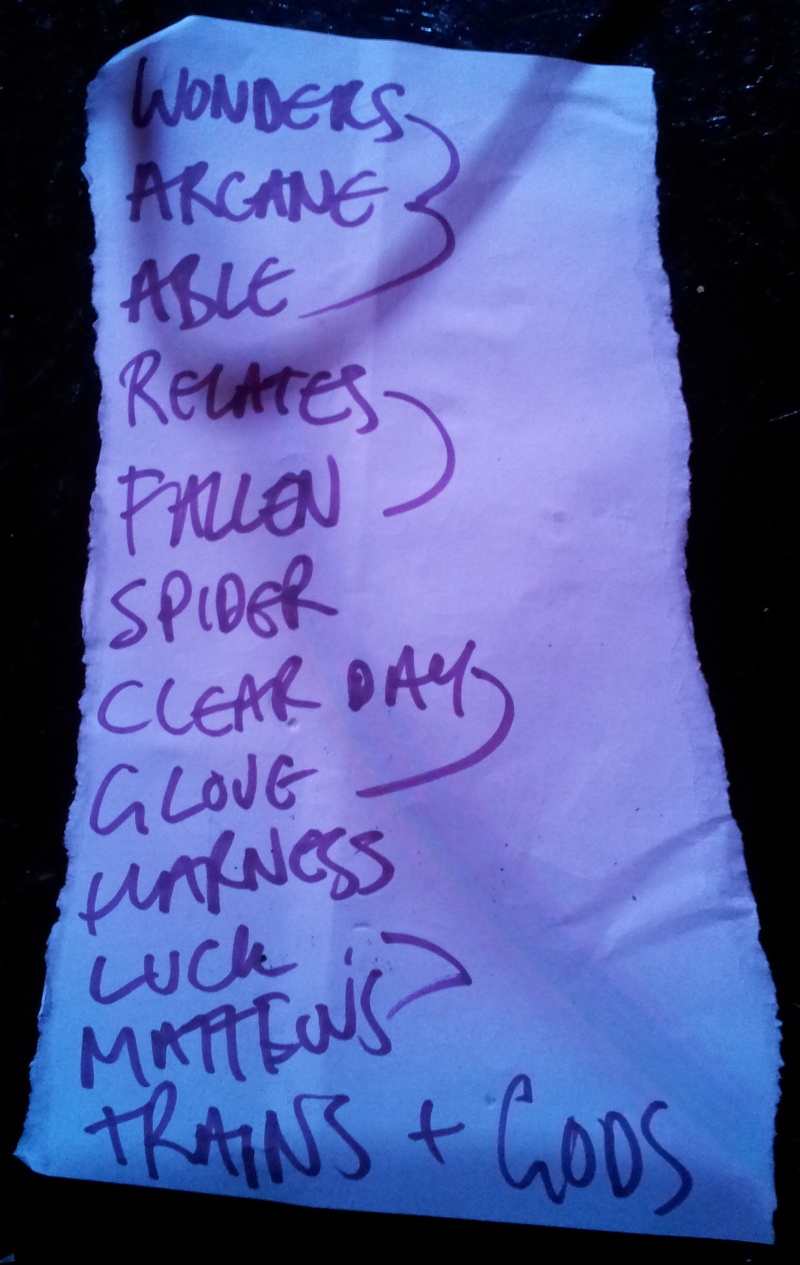 WONDERS
ARCANE
ABLE
RELATES
FALLEN
SPIDER
CLEAR DAY
GLOVE
HARNESS
LUCK
TRAINS + GODS